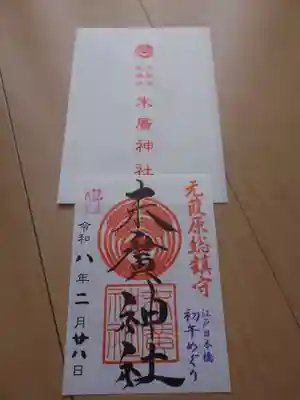 末廣神社
元葭原総鎮守
江戸日本橋
初午めぐり
末廣神社
令和八年二月廿八日